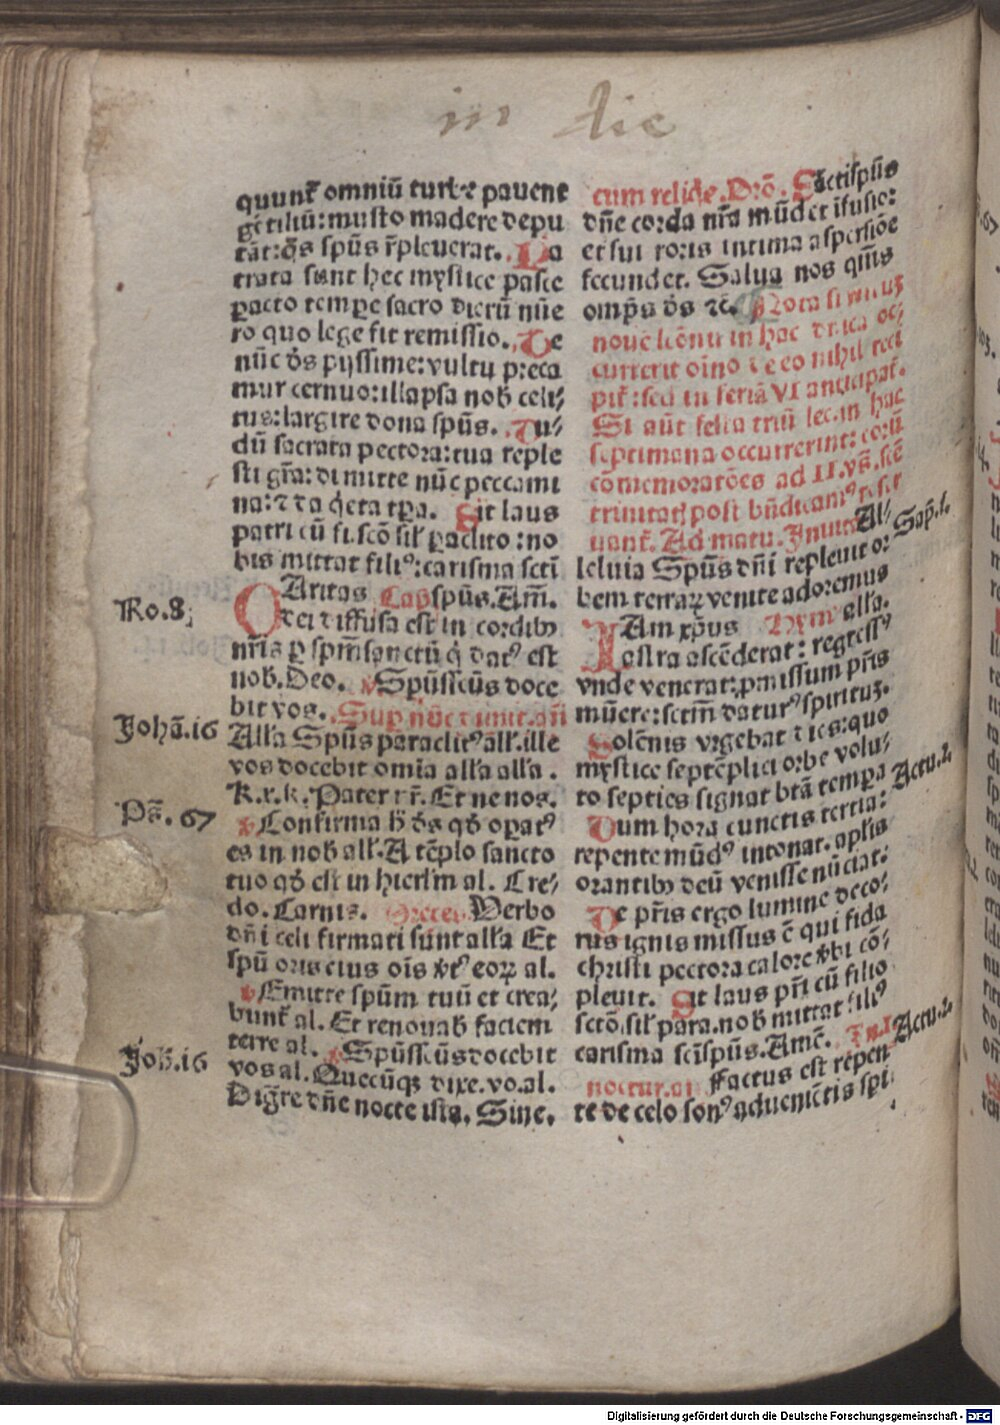 in die
quunt᷑ omniū turbe pauent
gētiliū: musto madere depu
tāt: q̄s spūs r̄pleuerat. Pa
trata sunt hec mystice pasce
ꝑacto tempe sacro dierū nūe
ro quo lege fit remissio. Te
nūc d̄s pijssime: vultu preca
mur cernuo: illapsa nob̄ celi⸗
tus: largire dona spūs. Du⸗
dū sacrata pectora: tua reple
sti gr̄a: dimitte nūc peccami
na: ⁊ da q̇eta tꝑa. Sit laus
patri cū fi. scō sił ꝑaclito: no
bis mittat filiꝰ: carisma scti
CAritas Cap̄ spūs. Am̄.
Ro. 8.
dei diffusa est in cordibꝫ
nr̄is ꝑ spm̄sanctū q̇ datꝰ est
nob. Deo. v Spūssc̄us doce
bit vos. Sup nūc dimit. añ
Johā. 16
Alla Spūs paraclitꝰ all'. ille
vos docebit omia alla alla.
K. x. k. Pater nr̄. Et ne nos.
Ps̄. 67
v Confirma h̄ d̄s qd̄ oꝑatꝰ
es in nob all'. A tēplo sancto
tuo qd̄ est in hierl'm al. Cre⸗
do. Carnis. Preces. Verbo
dñi celi firmati sunt alla Et
spū oris eius oīs v̇tꝰ eoꝝ al.
v Emitte spūm tuū et crea⸗
bunt᷑ al. Et renouab̄ faciem
terre al. v Spūssc̄us docebit
Joh̄. 16
vos al. Quecūqꝫ dixe. vo. al.
Dig̃re dñe nocte ista. Sine.
cum reliq̄e. Orō. Sctisp̄ūs
dñe corda nr̄a mūdet ifusio:
et sui roris intima aspersiōe
fecundet. Salua nos qm̄s
omp̄s d̄s ⁊c. Nota si
noue lcōnū in hac d̄nica oc⸗
currerit oīno de eo nihil reci
pit᷑: sed in feriā VI anticipat᷑.
Si aūt festa triū lec. in hac
septimana occurrerint: eorū
cōmemoratōes ad II. vs̄. scē
trinitat̃ post bn̄dicamꝰ
uant᷑. Ad matu. Inuita. Al⸗
leluia Spūs dñi repleuit or
Sap̄. 1.
bem terraꝝ venite adoremus
IAm xp̄us Hym alla.
astra ascēderat: regressꝰ
vnde venerat: pmissum pr̄is
mūere: sctm̄ daturꝰ spirituꝫ.
Solēnis vrgebat dies: quo
mystice septēplici orbe volu⸗
to septies signat btā tempa
Actu. 2.
Dum hora cunctis tertia:
repente mūdꝰ intonat. apłis
orantibꝫ deū venisse nūciat:
De pr̄is ergo lumine deco⸗
rus ignis missus ē qui fida
christi pectora calore v̇bi cō⸗
pleuit. Sit laus pr̄i cū filio
sctō. sił para. nob̄ mittat filiꝰ
carisma sc̄ispūs. Amē. In I
Actu. 2.
noctur. añ Factus est repen
te de celo sonꝰ aduenietis spi
Digitalisierung gefördert durch die Deutsche Forschungsgemeinschaft - DFG